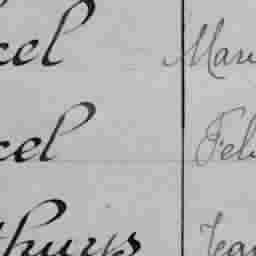 cel Mari
cel Feli
thuys Jea